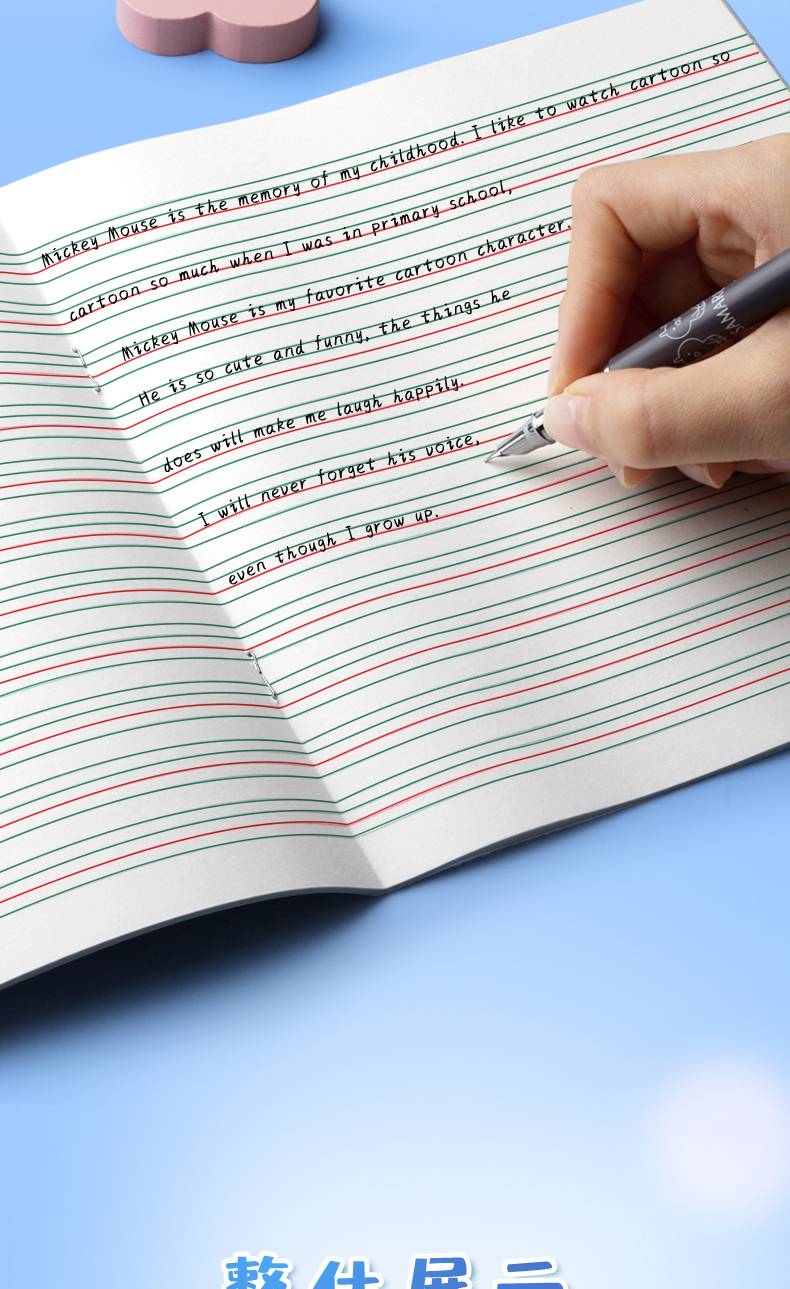 Mickey Mouse is the memory of my childhood. I like to watch cartoon so
cartoon so much when I was in primary school,
Mickey Mouse is my favorite cartoon character.
He is so cute and funny, the things he
does will make me laugh happily.
I will never forget his voice,
even though I grow up.